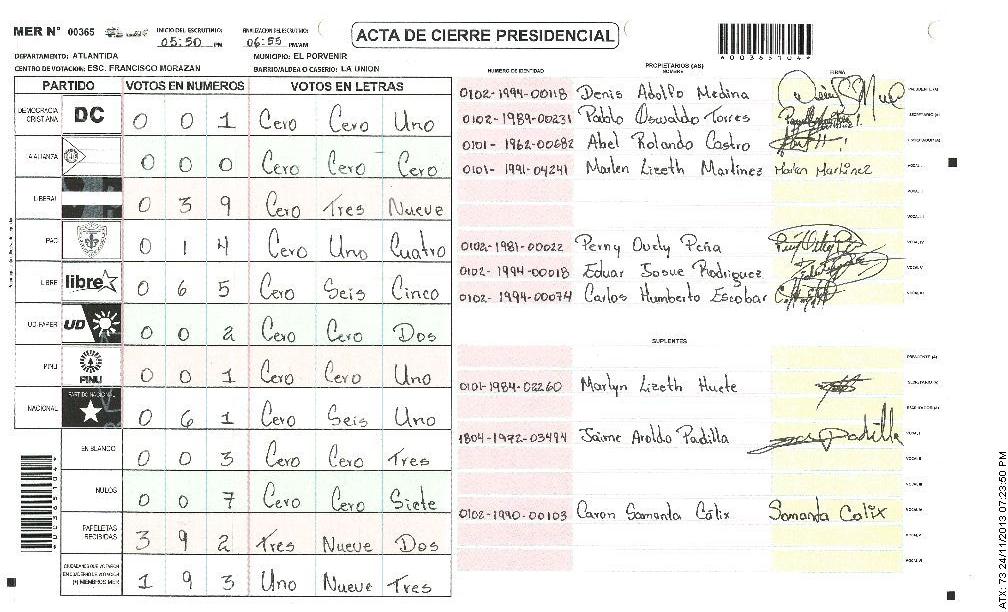 MER N° 00365 INICIO DEL ESCRUTINIO: 05:50 PM FINALIZACION DEL ESCRUTINIO: 06:55 PM/AM ACTA DE CIERRE PRESIDENCIAL
DEPARTAMENTO: ATLANTIDA MUNICIPIO: EL PORVENIR
CENTRO DE VOTACION: ESC. FRANCISCO MORAZAN BARRIO/ALDEA O CASERIO: LA UNION
PARTIDO VOTOS EN NUMEROS VOTOS EN LETRAS
DEMOCRACIA CRISTIANA DC 0 0 1 Cero Cero Uno
ALIANZA 0 0 0 Cero Cero Cero
LIBERAL 0 3 9 Cero Tres Nueve
PAC 0 1 4 Cero Uno Cuatro
LIBRE libre 0 6 5 Cero Seis Cinco
UD-FAPER UD 0 0 2 Cero Cero Dos
PINU PINU 0 0 1 Cero Cero Uno
NACIONAL PARTIDO NACIONAL 0 6 1 Cero Seis Uno
EN BLANCO 0 0 3 Cero Cero Tres
NULOS 0 0 7 Cero Cero Siete
PAPELETAS RECIBIDAS 3 9 2 Tres Nueve Dos
CIUDADANOS QUE VOTARON EN CUADERNO DE VOTACION (+) MIEMBROS MER 1 9 3 Uno Nueve Tres
PROPIETARIOS (AS)
NUMERO DE IDENTIDAD NOMBRE FIRMA
0102-1994-00118 Denis Adolfo Medina PRESIDENTE (A)
0102-1989-00231 Pablo Oswaldo Torres SECRETARIO (A)
0101-1962-00682 Abel Rolando Castro ESCRUTADOR (A)
0101-1991-04241 Marlen Lizeth Martinez Marlen Martinez VOCAL I
VOCAL II
VOCAL III
0102-1981-00022 Perny Ovely Peña VOCAL IV
0102-1994-00018 Eduar Josue Rodriguez VOCAL V
0102-1994-00074 Carlos Humberto Escobar VOCAL VI
SUPLENTES
PRESIDENTE (A)
0101-1984-02260 Marlyn Lizeth Huete SECRETARIO (A)
ESCRUTADOR (A)
1804-1972-03494 Jaime Aroldo Padilla Padilla VOCAL I
VOCAL II
VOCAL III
0102-1990-00103 Caron Samanta Cálix Samanta Calix VOCAL IV
VOCAL V
VOCAL VI
ATX: 73 24/11/2013 07:23:50 PM